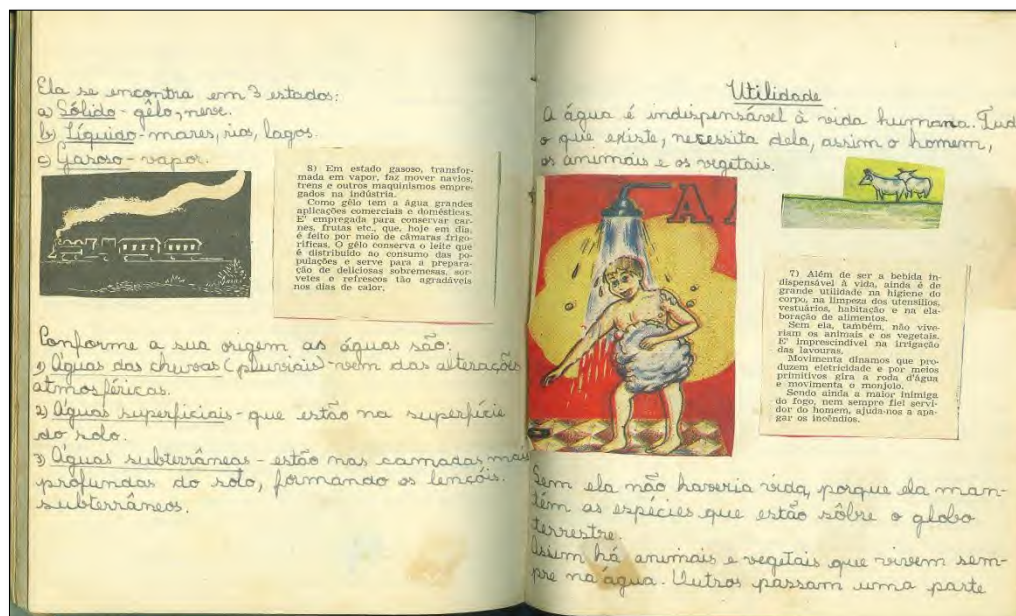 Ela se encontra em 3 estados:
a) Sólido - gêlo, neve.
b) Líquido - mares, rios, lagos.
c) Gasoso - vapor.
8) Em estado gasoso, transfor-
mada em vapor, faz mover navios,
trens e outros maquinismos empre-
gados na indústria.
Como gêlo tem a água grandes
aplicações comerciais e domésticas.
E' empregada para conservar car-
nes, frutas etc., que, hoje em dia,
é feito por meio de câmaras frigo-
ríficas. O gêlo conserva o leite que
é distribuído ao consumo das po-
pulações e serve para a prepara-
ção de deliciosas sobremesas, sor-
vetes e refrescos tão agradáveis
nos dias de calor.
Conforme a sua origem as águas são:
1) Águas das chuvas (pluviais) - vem das alterações
atmosféricas.
2) Águas superficiais - que estão na superfície
do solo.
3) Águas subterrâneas - estão nas camadas mais
profundas do solo, formando os lençóis.
subterrâneos.
Utilidade
A água é indispensável à vida humana. Tud
o que existe, necessita dela, assim o homem,
os animais e os vegetais.
A A
7) Além de ser a bebida in-
dispensável à vida, ainda é de
grande utilidade na higiene do
corpo, na limpeza dos utensílios,
vestuários, habitação e na ela-
boração de alimentos.
Sem ela, também, não vive-
riam os animais e os vegetais.
E' imprescindível na irrigação
das lavouras.
Movimenta dínamos que pro-
duzem eletricidade e por meios
primitivos gira a roda d'água
e movimenta o monjolo.
Sendo ainda a maior inimiga
do fogo, nem sempre fiel servi-
dor do homem, ajuda-nos a apa-
gar os incêndios.
Sem ela não haveria vida, porque ela man-
tém as espécies que estão sôbre o globo
terrestre.
Assim há animais e vegetais que vivem sem-
pre na água. Outros passam uma parte